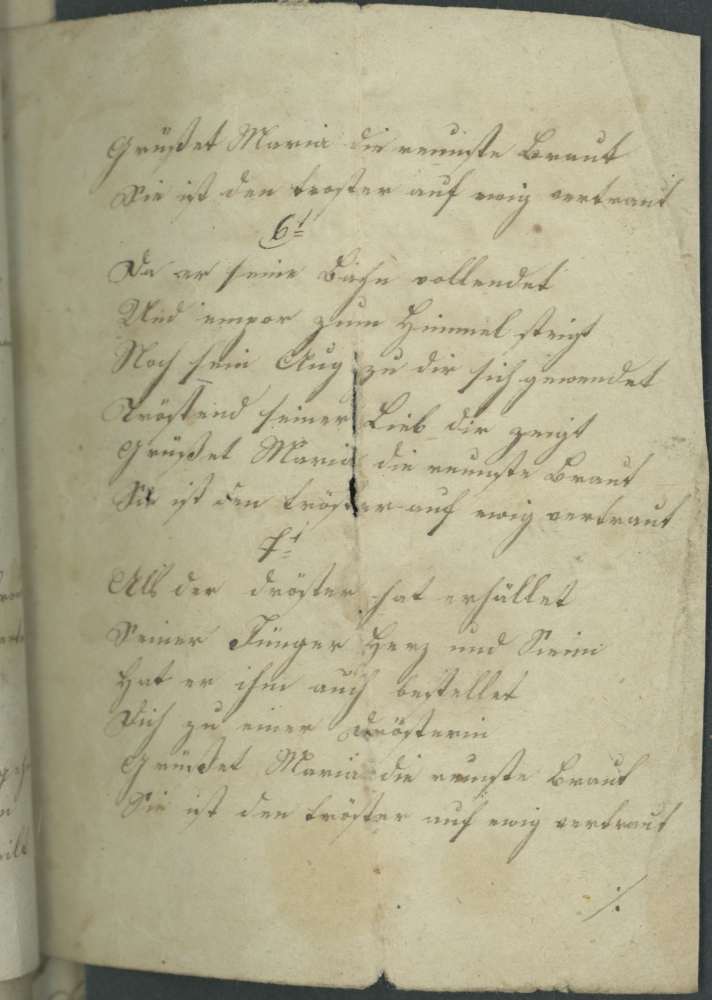 Grüßet Maria die reinste Braut
Sie ist den troster auf ewig vertraut
6t
Da er seine Bahn vollendet
Und empor zum Himmel steigt
Noch sein Aug zu dir sich gewendet
Tröstend seiner Lieb dir zeigt
Grüßet Maria die reinste Braut
Sie ist den tröster auf ewig vertraut
7t
Als der dröster hat erhället
Seiner Jünger Herz und Sinn
Hat er ihm auch bestellet
Dich zu einer drösterin
Grüßet Maria die reinste Braut
Sie ist den tröster auf ewig vertraut